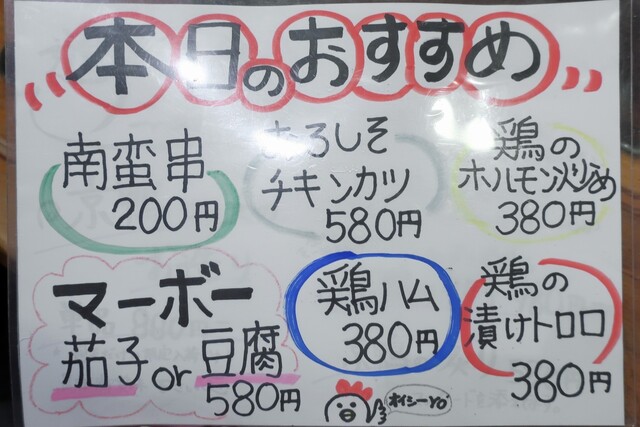 本日のおすすめ
南蛮串
200円
おろしそ
チキンカツ
580円
鶏の
ホルモン炒め
380円
マーボー
茄子or豆腐
580円
鶏ハム
380円
鶏の
漬けトロロ
380円
オイシーYO